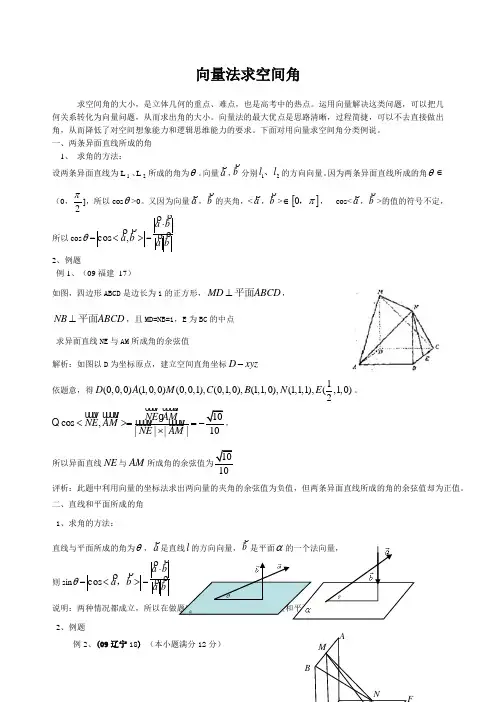 向量法求空间角
求空间角的大小，是立体几何的重点、难点，也是高考中的热点。运用向量解决这类问题，可以把几
何关系转化为向量问题，从而求出角的大小。向量法的最大优点是思路清晰，过程简捷，可以不去直接做出
角，从而降低了对空间想象能力和逻辑思维能力的要求。下面对用向量求空间角分类例说。
一、两条异面直线所成的角
1、 求角的方法：
设两条异面直线为L₁、L₂所成的角为θ。向量a、b 分别l₁、l₂的方向向量。因为两条异面直线所成的角θ∈
（0，π/2]，所以cosθ>0。又因为向量a，b 的夹角，<a，b>∈[0，π]， cos<a，b>的值的符号不定，
所以cosθ−|cos<a,b>|−|a·b|/|a||b|
2、例题
例1、（09福建 17）
如图，四边形ABCD是边长为1的正方形，MD⊥平面ABCD，
NB⊥平面ABCD，且MD=NB=1，E为BC的中点
求异面直线NE与AM所成角的余弦值
解析：如图以D为坐标原点，建立空间直角坐标D−xyz
依题意，得D(0,0,0)A(1,0,0)M(0,0,1),C(0,1,0),B(1,1,0),N(1,1,1),E(1/2,1,0)。
Q cos<NE,AM>=NE g AM/|NE|×|AM|=−√10/10，
所以异面直线NE与AM所成角的余弦值为√10/10
评析：此题中利用向量的坐标法求出两向量的夹角的余弦值为负值，但两条异面直线所成的角的余弦值却为正值。
二、直线和平面所成的角
1、求角的方法：
直线与平面所成的角为θ，a是直线l的方向向量，b是平面α的一个法向量，
则sinθ−|cos<a，b>|−|a·b|/|a||b|
说明：两种情况都成立，所以在做题 和平
2、例题
例2、(09辽宁18) （本小题满分12分）
M
N
D
C
A
B
b
a
θ
a
b
α
A
M
B
N
F